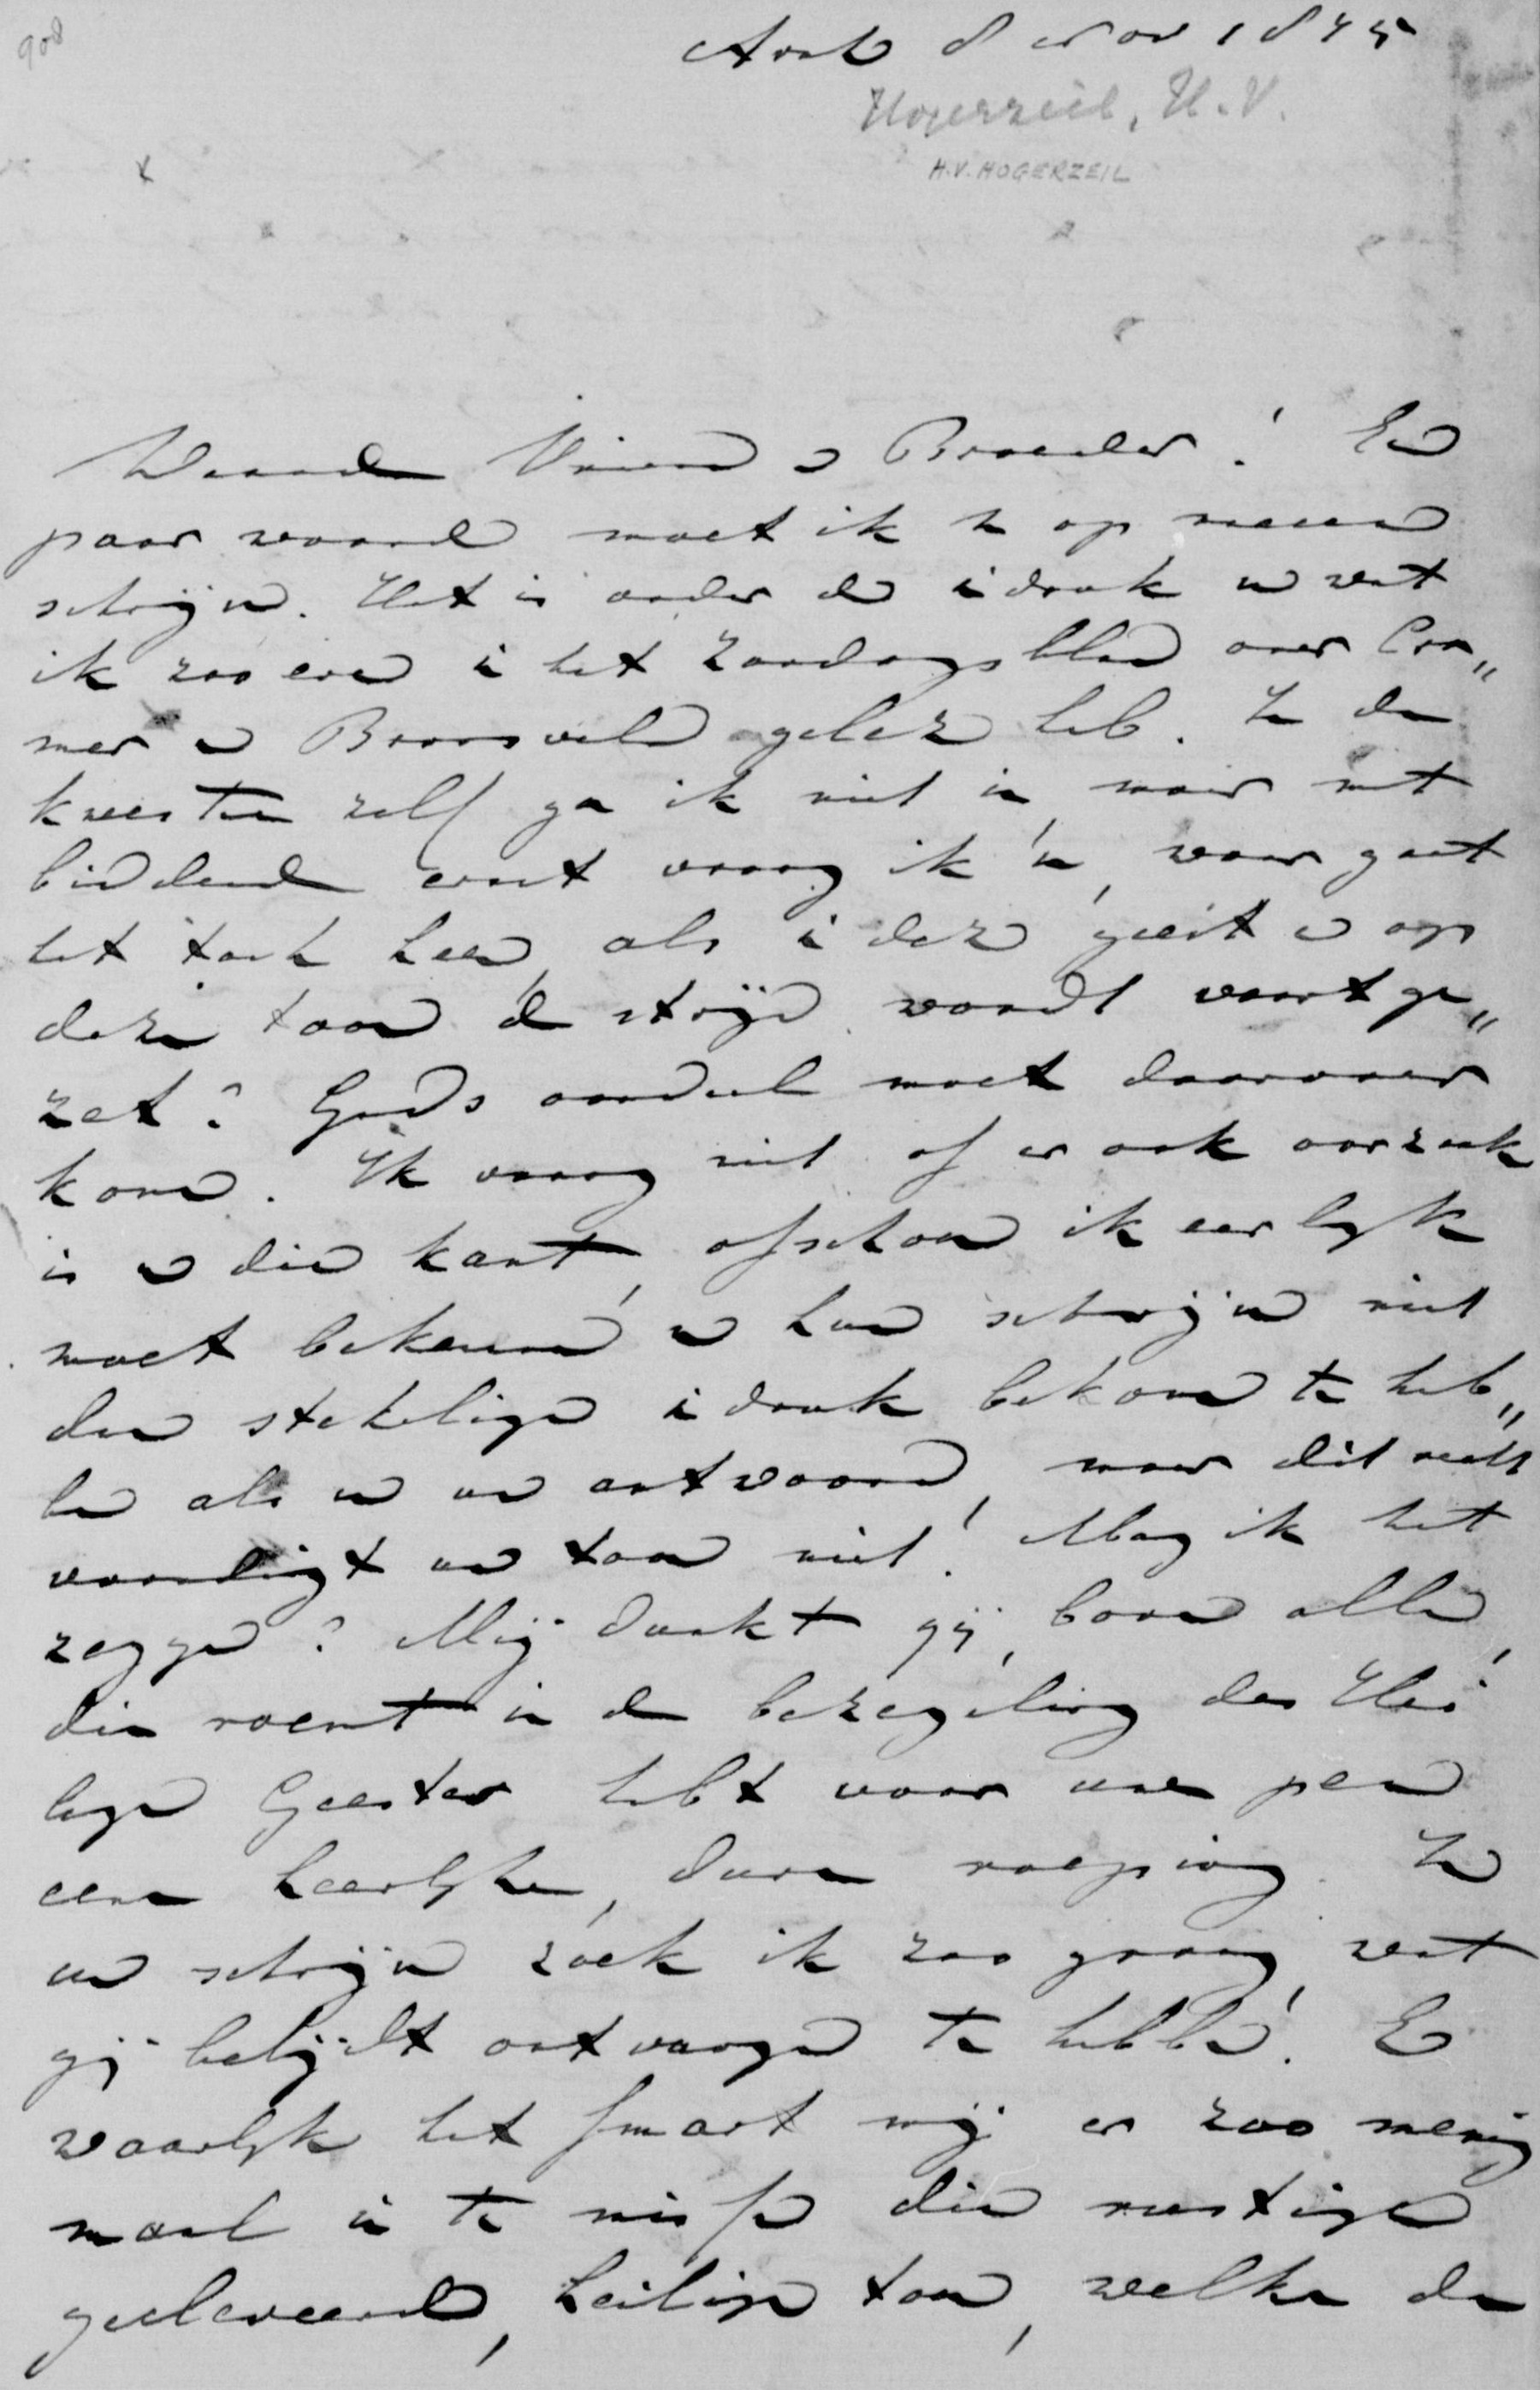 908
8 Nov 1875
Hogerzeil, H.V.
H.V. HOGERZEIL
x
Waarde Vriend en Broeder! Een
paar woorden moet ik U op nieuw
schrijven. Het is onder den indruk van wat
ik zoo even in het Zondagsblad over Cra„
mer en Bronsveld gelezen heb. In de
kwestie zelf ga ik niet in, maar met
biddend ernst vraag ik u, waar gaat
het toch heen, als in dezen geest en op
dezen toon de strijd wordt voortge„
zet? Gods oordeel moet daarover
komen. Ik vraag niet of er ook oorzaak
is van dien kant, ofschoon ik eerlijk
moet bekennen van hun schrijven niet
den stekeligen indruk bekomen te heb„
ben als van uw antwoord, maar dit recht
vaardigt uw toon niet! Mag ik het
zeggen? Mij dunkt gij, boven allen,
die roemt in de bezegeling des Hei
ligen Geestes hebt voor uwe pen
eene heerlijke, dure roeping. In
uw schrijven zoek ik zoo graag, wat
gij belijdt ontvangen te hebben! En
waarlijk het smart mij er zoo menig
maal in te missen dien rustigen
heiligen toon, welke de